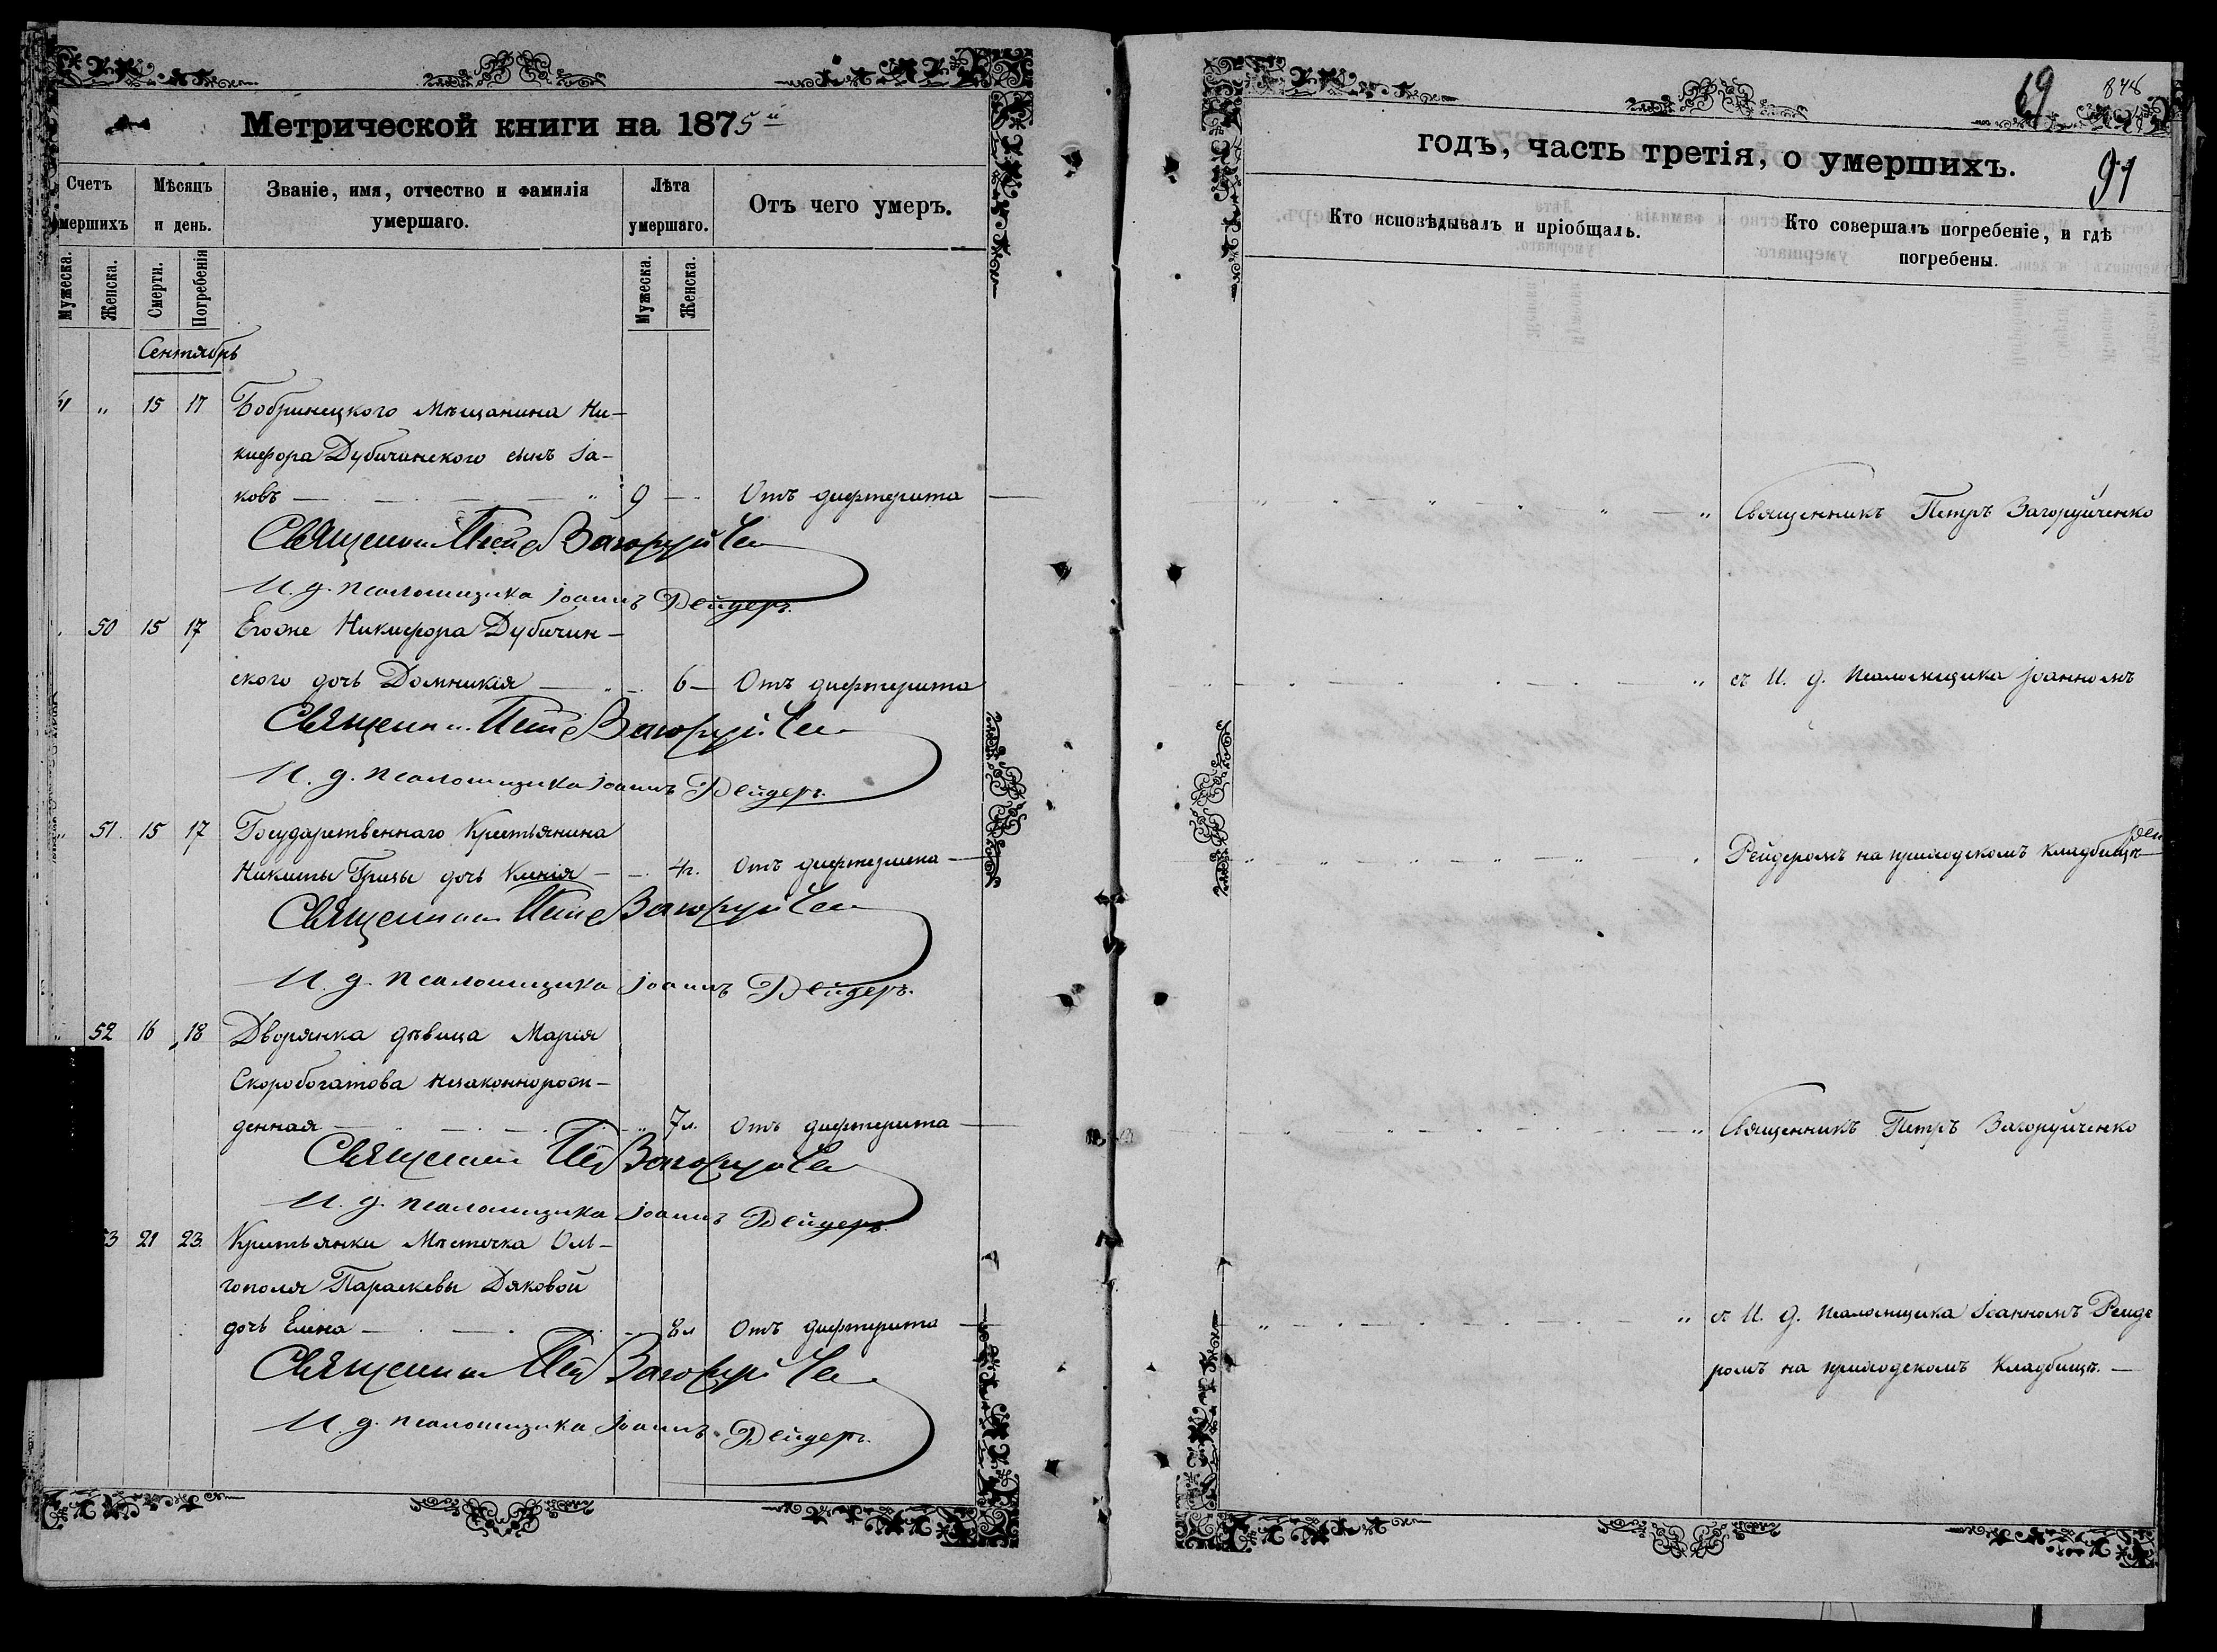 Метрической книги на 1875й
Счетъ умершихъ
Мѣсяцъ и день.
Званіе, имя, отчество и фамилія умершаго.
Лѣта умершаго.
Отъ чего умеръ.
Мужеска.
Женска.
Смерти.
Погребенія
Мужеска.
Женска.
Сентябрь
" 15 17 Бобринецкого Мѣщанина Ни-
кифора Дубичинского сынъ Іа-
ковъ — " 9 — Отъ дифтерита
Священникъ Петръ Загоруйченко
И. д. псаломщика Іоаннъ Рейдеръ.
50 15 17 Егоже Никифора Дубичин-
ского дочь Домникія — 6 — Отъ дифтерита
Священникъ Петръ Загоруйченко
И. д. псаломщика Іоаннъ Рейдеръ.
" 51. 15 17 Государственнаго Крестьянина
Никиты Гризы дочь — 4г. Отъ дифтерита —
Священникъ Петръ Загоруйченко
И. д. псаломщика Іоаннъ Рейдеръ.
" 52 16 18 Дворянка дѣвица Марія
Скоробогатова незаконнорож-
денная — " 7л. Отъ дифтерита —
Священникъ Петръ Загоруйченко
И. д. псаломщика Іоаннъ Рейдеръ.
53 21 23 Крестьянки Мѣстечка Оль-
гополя Параскевы Дяковой
дочь Елена — 8л Отъ дифтерита —
Священникъ Петръ Загоруйченко
И. д. псаломщика Іоаннъ Рейдеръ.
69
848
91
годъ, часть третія, о умершихъ.
Кто исповѣдывалъ и пріобщалъ.
Кто совершалъ погребеніе, и гдѣ
погребены.
" Священникъ Петръ Загоруйченко
" съ И. д. псаломщика Іоанномъ
Рейдеромъ на приходскомъ кладбищѣ
" Священникъ Петръ Загоруйченко
" съ И. д. псаломщика Іоанномъ Рейде
ромъ на приходскомъ кладбищѣ. —